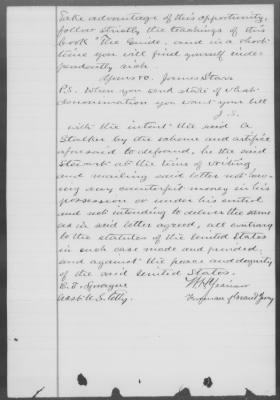 Take advantage of this opportunity,
follow strictly the teachings of this
book "The Guide, and in a short
time you will find yourself inde-
pendently rich.
Yours vo. James Starr
P.S. When you send state of what
denomination you want your bill
J.S.
with the intent the said A
Stalker by the scheme and artifice
aforesaid to defraud, he the said
Stewart at the time of writing
and mailing said letter not hav-
ing any counterfeit money in his
possession or under his control
and not intending to deliver the same
as in said letter agreed, all contrary
to the statutes of the United States
in such case made and provided,
and against the peace and dignity
of the said United States.
E. F.
Asst. U.S. Atty.
Foreman Grand Jury